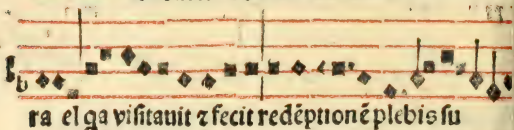 ra el qa viſitauit ⁊ fecit redēptionē plebis ſu